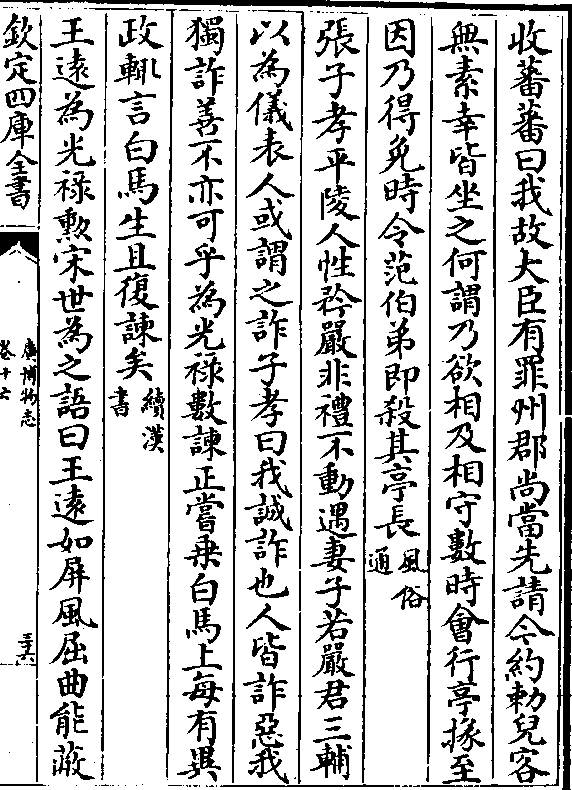 收蕃蕃曰我故大臣有罪州郡尚當先請今約勑兒客
無素幸皆坐之何謂乃欲相及相守數時會行亭掾至
因乃得免時令范伯弟即殺其亭長風俗
通
張子孝平陵人性矜嚴非禮不動遇妻子若嚴君三輔
以為儀表人或謂之詐子孝曰我誠詐也人皆詐惡我
獨詐善不亦可乎為光禄數諫正嘗乗白馬上每有異
政輒言白馬生且復諫矣續漢
書
王逺為光禄勲宋世為之語曰王逺如屏風屈曲能蔽
欽定四庫全書
廣博物志
卷十七
三六